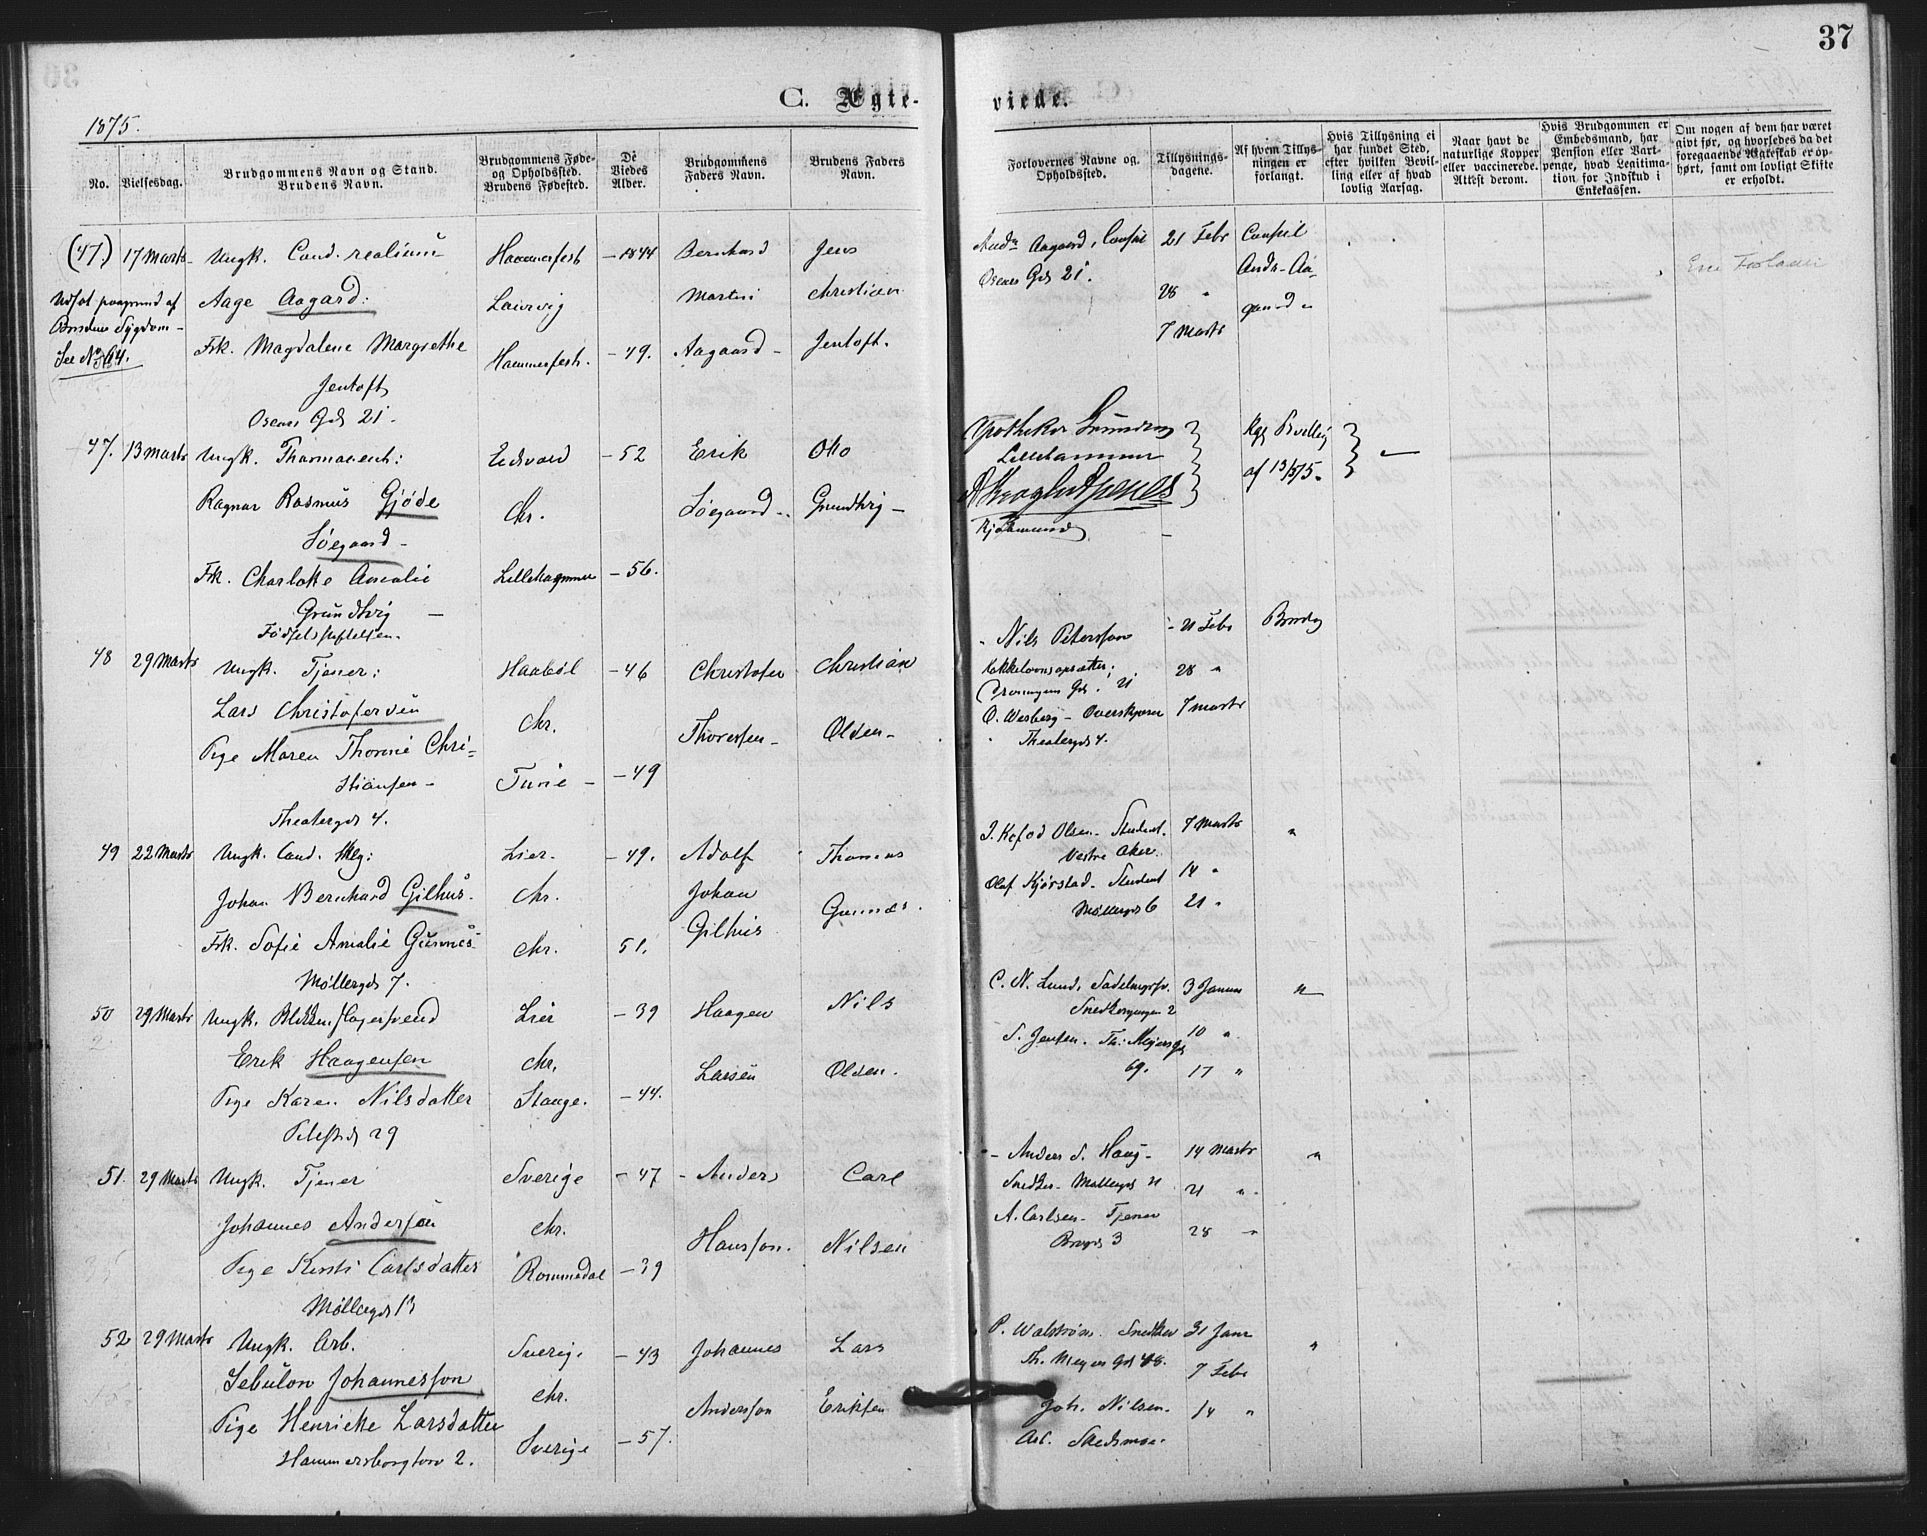 37
C. Ægte-
viede.
1875.
No.
Vielsesdag.
Brudgommens Navn og Stand.
Brudens Navn.
Brudgommens Føde-
og Opholdssted.
Brudens Fødested.
De
Viedes
Alder.
Brudgommens
Faders Navn.
Brudens Faders
Navn.
Forlovernes Navne og
Opholdssted.
Tillysnings-
dagene.
Af hvem Tillys-
ningen er
forlangt.
Hvis Tillysning ei
har fundet Sted,
efter hvilken Bevil-
ling eller af hvad
lovlig Aarsag.
Naar havt de
naturlige Kopper
eller vaccinerede.
Attest derom.
Hvis Brudgommen er
Embedsmand, har
Pension eller Vart-
penge, hvad Legitima-
tion for Indskud i
Enkekassen.
Om nogen af dem har været
givt før, og hvorledes da det
foregaaende Ægteskab er op-
hørt, samt om lovligt Skifte
er erholdt.
(47.) 17 Marts - Ungk. Cand. realium Hammerfest - 1844 Bernhard Jens
Aage Aagard: Laurvig Martin Christian
Brudens Sygdom -
See No 64.
Frk. Magdalene Margrethe Hammerfest. - 49. Aagaard - Jentoft.
Jentoft
Oscars Gd 21.
Aagaard, Consul 21 Febr Consul
Oscars Gd 21. Andr. Aa-
28 " gaard "
7 Marts
47. 13 Marts Ungk. Eidsvold - 52 Erik Otto
Ragnar Rasmus Gjøde Chr. Søegaard - Grundtvig -
Søegaard -
Frk. Charlotte Amalie Lillehammer - 56.
Grundtvig -
Fødselsstiftelsen.
Lillehammer
af 13/3 75.
48 29 Marts Ungk. Tjener: - 46 Christofer Christian
Lars Christofersen Chr. Thoresen - Olsen -
Pige Maren Thorine Chri-
stiansen - - 49
Theatergd 4.
- Nils Petersson - 21 Febr
Kakkelovnsopsætter; 28 "
21
O. Wesberg - 7 Marts
Theatergd 4.
49 22 Marts Ungk. Cand. Lier. - 49. Adolf Thomas
Johan Bernhard Gilhus. Chr. Johan
Gilhus
Frk. Sofie Amalie Chr. 51.
Møllergd 7.
J. Kofod Olsen - Student. 7 Marts "
Vestre Aker.
Olaf Kjørstad - Student 14 "
Møllergd 6 21 "
50 29 Marts Ungk. Lier - 39 Haagen Nils
Erik Haagensen Chr. Larsen Olsen.
Pige Karen Nilsdatter Stange. - 44.
Pilestd 29
C. N. Lund, 3 Januar "
2
S. Jensen. Th: Meyersgd 10 "
69. 17 "
51. 29 Marts Ungk. Tjener Sverige - 47 - Anders Carl
Johannes Anderson Chr. Hansson. Nilsen
Pige Kersti Carlsdatter Rommedal - 39
Møllergd 13
- Anders S. Haug - 14 Marts "
Snedker - Møllergd 21 "
A. Carlsen - Tjener 28 "
3
52 29 Marts Ungk. Arb. Sverige - 43 Johannes Lars
Sebulon Johannesson Chr. Andersson Eriksen
Pige Henriette Larsdatter Sverige - 57.
Hammersborgtorv 2.
P. Walstrøm. Snedker 31 Janr "
Th. Meyers Gd 48. 7 Febr
Joh. Nilsen. 14 "
Arb. Skedsmo.